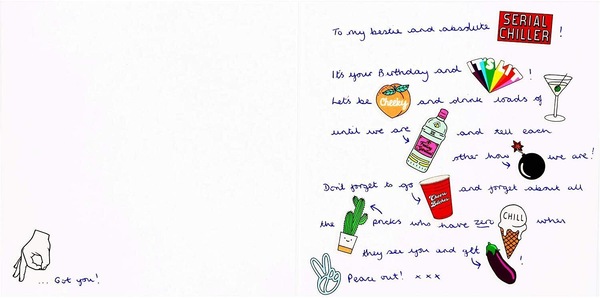 To my bestie and absolute SERIAL CHILLER !
It's your Birthday and IT'S LIT !
Let's be Cheeky and drink loads of
until we are and tell each
other how we are!
Don't forget to go Cheers Bitches and forget about all
the pricks who have zero CHILL when
they see you and get !
Peace out! x x x
... Got you!